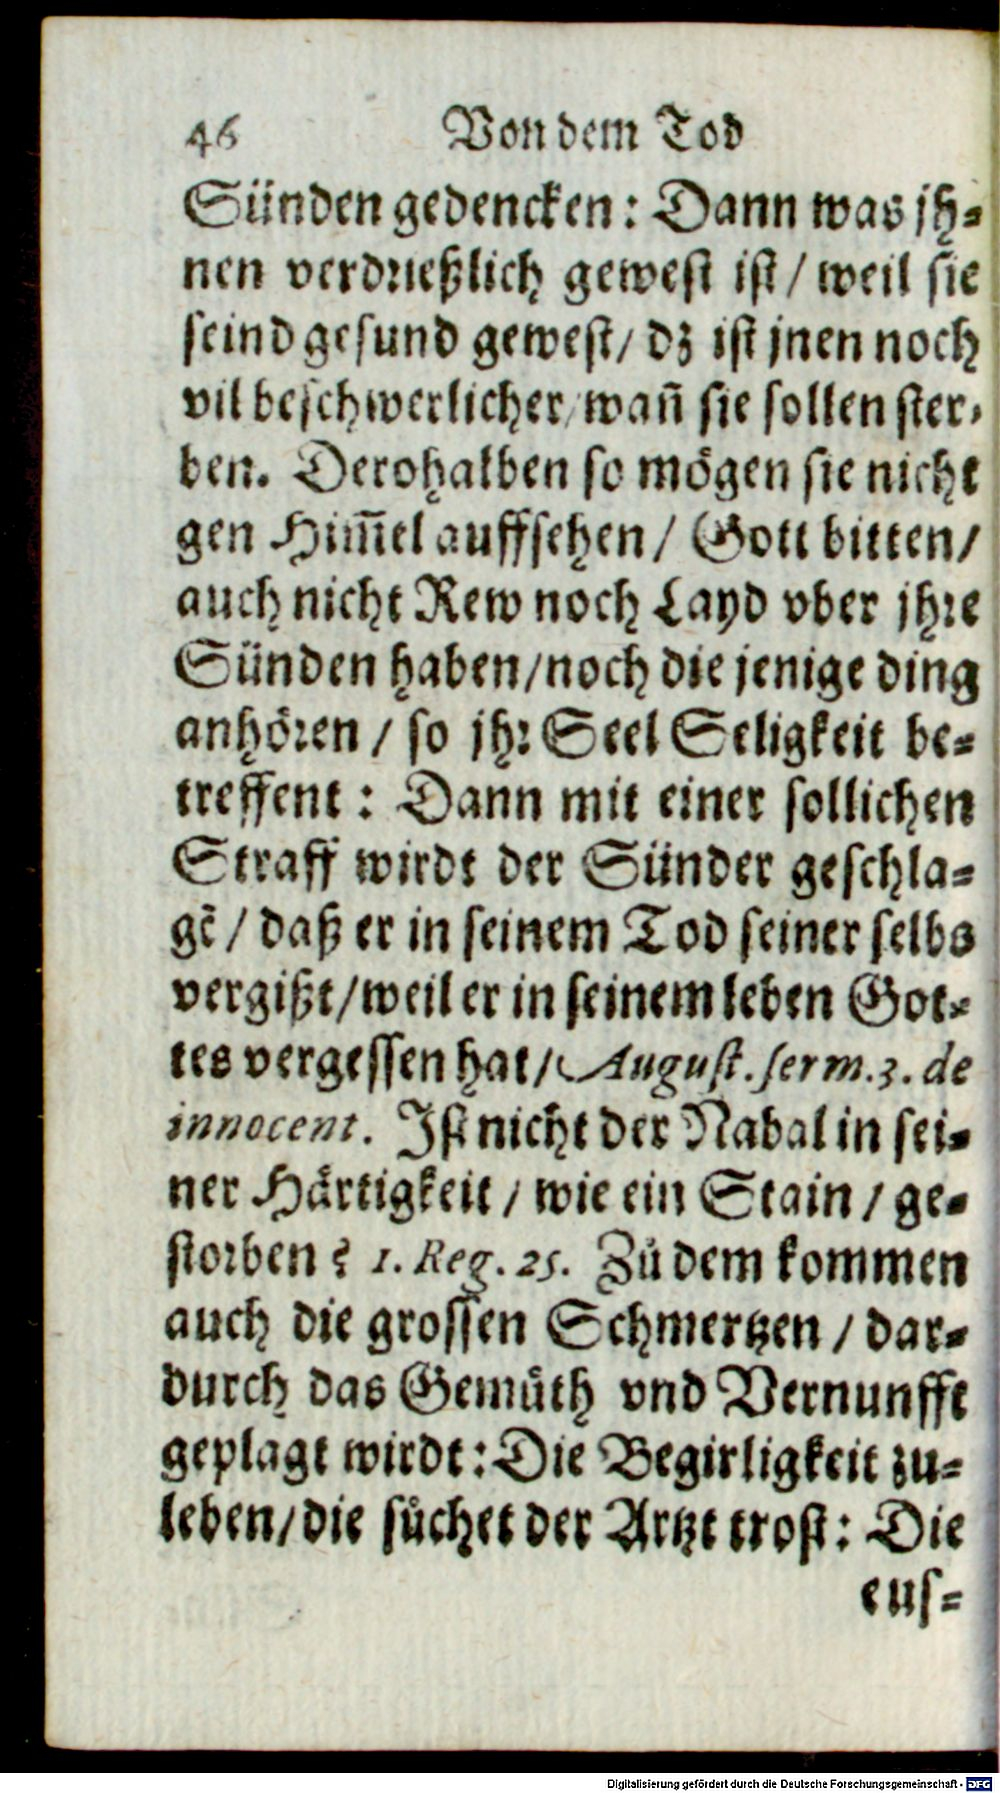 46 Von dem Tod
Sünden gedencken: Dann was jh-
nen verdrießlich gewest ist/ weil sie
seind gesund gewest/ dz ist jnen noch
vil beschwerlicher/ wañ sie sollen ster-
ben. Derohalben so mögen sie nicht
gen Him̃el auffsehen/ Gott bitten/
auch nicht Rew noch Layd vber jhre
Sünden haben/ noch die jenige ding
anhören/ so jhr Seel Seligkeit be-
treffent: Dann mit einer sollichen
Straff wirdt der Sünder geschla-
gẽ/ daß er in seinem Tod seiner selbs
vergißt/ weil er in seinem leben Got-
tes vergessen hat/ August. serm. 3. de
innocent. Ist nicht der Nabal in sei-
ner Härtigkeit/ wie ein Stain/ ge-
storben? 1. Reg. 25. Zů dem kommen
auch die grossen Schmertzen/ dar-
durch das Gemüth vnd Vernunfft
geplagt wirdt: Die Begirligkeit zu-
leben/ die sůchet der Artzt trost: Die
eus-
Digitalisierung gefördert durch die Deutsche Forschungsgemeinschaft - DFG